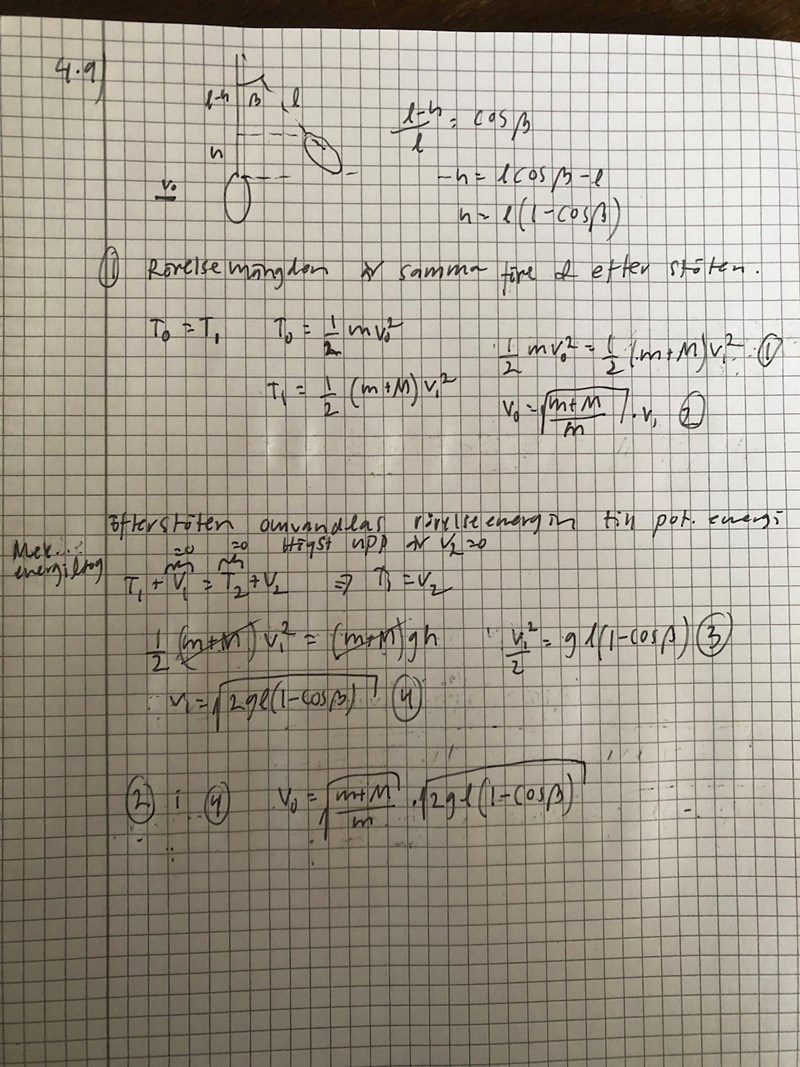 4.9
l-h β l
h
v₀
(l-h)/l = cosβ
-h = l cosβ - l
h = l(1-cosβ)
① Rörelsemängden är samma före & efter stöten.
T₀ = T₁ T₀ = 1/2 mv₀²
T₁ = 1/2 (m+M) v₁²
1/2 mv₀² = 1/2 (m+M) v₁² ①
v₀ = √((m+M)/m) · v₁ ②
Efter stöten omvandlas rörelseenergin till pot. energi
Mek... energilag
Högst upp är v₂=0
=0 =0
T₁ + V₁ = T₂ + V₂ ⇒ T₁ = V₂
1/2 (m+M) v₁² = (m+M) gh v₁²/2 = gl(1-cosβ) ③
v₁ = √(2gl(1-cosβ)) ④
② i ④ v₀ = √((m+M)/m) · √(2gl(1-cosβ))